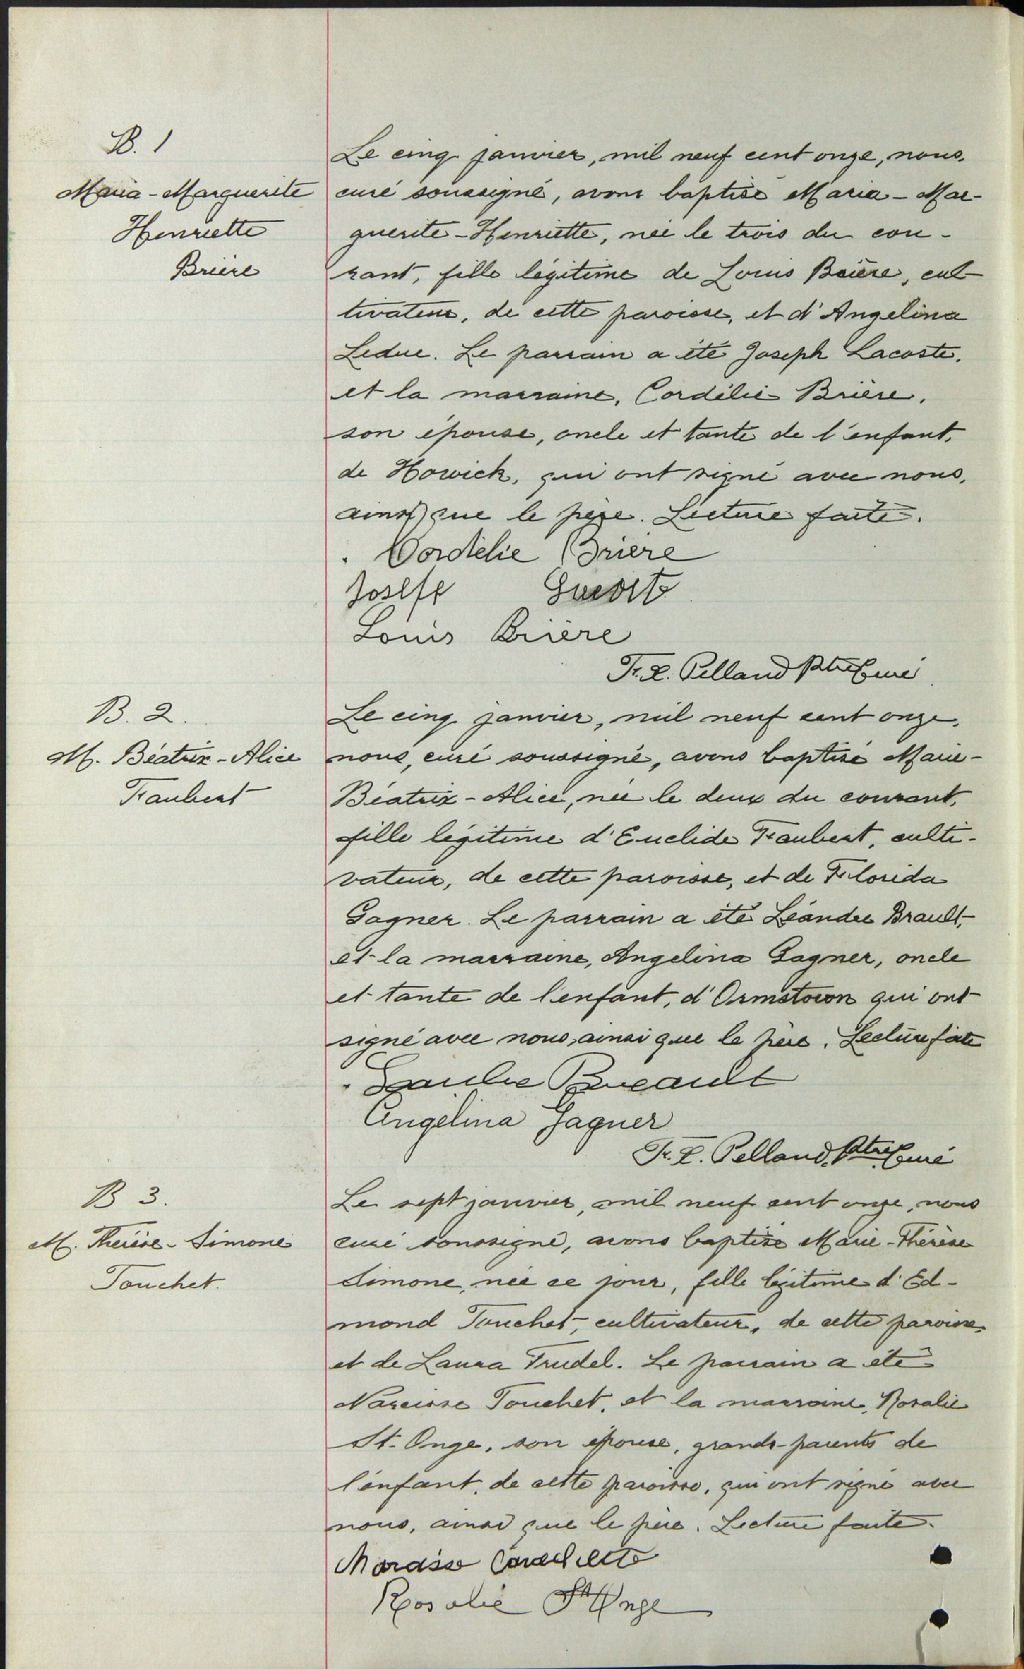 B. 1
Maria-Marguerite
Henriette
Brière
Le cinq janvier, mil neuf cent onze, nous,
curé soussigné, avons baptisé Maria-Mar-
guerite-Henriette, née le trois du cou-
rant, fille légitime de Louis Brière, cul-
tivateur, de cette paroisse, et d'Angelina
Leduc. Le parrain a été Joseph Lacoste,
et la marraine, Cordélie Brière,
son épouse, oncle et tante de l'enfant,
de Howick, qui ont signé avec nous,
ainsi que le père. Lecture faite.
Cordélie Brière
Joseff
Louis Brière
F. X. Pelland Ptre Curé
B. 2.
M. Béatrix-Alice
Faubert
Le cinq janvier, mil neuf cent onze,
nous, curé soussigné, avons baptisé Marie-
Béatrix-Alice, née le deux du courant,
fille légitime d'Euclide Faubert, culti-
vateur, de cette paroisse, et de Florida
Gagner. Le parrain a été Léandre Brault,
et la marraine, Angelina Gagner, oncle
et tante de l'enfant, d'Ormstown qui ont
signé avec nous, ainsi que le père. Lecture faite
Breault
Angélina Gagner
F. X. Pelland, Ptre Curé
B 3.
M. Thérèse-Simone
Touchet.
Le sept janvier, mil neuf cent onze, nous
curé soussigné, avons baptisé Marie-Thérèse
Simone, née ce jour, fille légitime d'Ed-
mond Touchet, cultivateur, de cette paroisse,
et de Laura Trudel. Le parrain a été
Narcisse Touchet, et la marraine, Rosalie
St-Onge, son épouse, grands-parents de
l'enfant, de cette paroisse, qui ont signé avec
nous, ainsi que le père. Lecture faite.
Rosalie St Onge